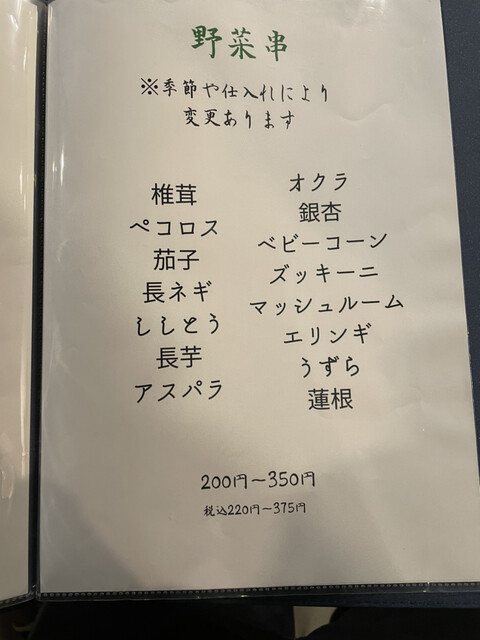 野菜串
※季節や仕入れにより
変更あります
椎茸
ペコロス
茄子
長ネギ
ししとう
長芋
アスパラ
オクラ
銀杏
ベビーコーン
ズッキーニ
マッシュルーム
エリンギ
うずら
蓮根
200円～350円
税込220円～375円